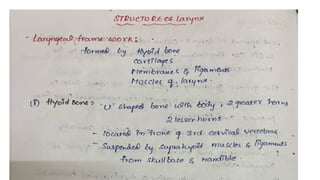 STRUCTURE OF Larynx
- Laryngeal frame work :
- formed by Hyoid bone
Cartilages
Membranes & ligaments
Muscles of larynx.
(1) Hyoid Bone : 'U' shaped bone with body, 2 greater horns
2 lesser horns
- located in front of 3rd cervical vertebrae
- Suspended by suprahyoid muscles & ligaments
from skull base & mandible.